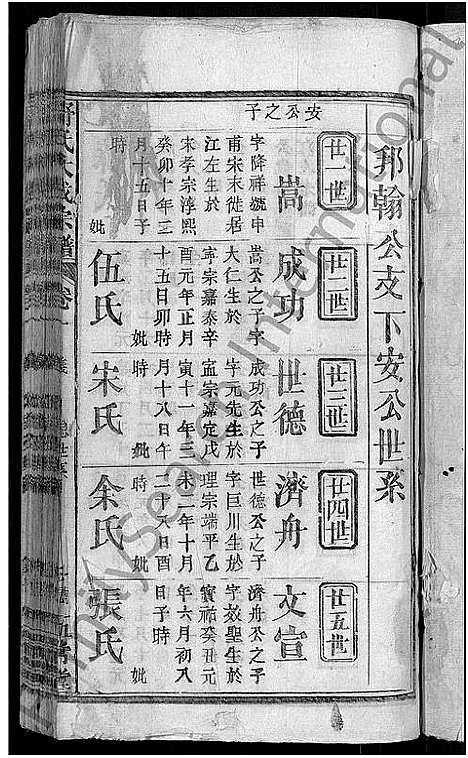 邦翰公支下安公世系
廿一世
廿二世
廿三世
廿四世
廿五世
安公之子
嵩
字降祥號申
甫宋末徙居
江左生於
宋孝宗淳熙
癸卯十年三
月十五日子
時
妣
伍氏
成功
嵩公之子字
大仁生於
寧宗嘉泰辛
酉元年正月
十五日卯時
妣
宋氏
世德
成功公之子
字元先生於
寧宗嘉定戊
寅十一年三
月十八日午
時
妣
余氏
濟舟
世德公之子
字巨川生於
理宗端平乙
未二年十月
二十八日酉
時
妣
張氏
文宣
濟舟公之子
字效聖生於
寶祐癸丑元
年六月初八
日子時
妣
氏大成宗譜
卷一
FamilySearch International